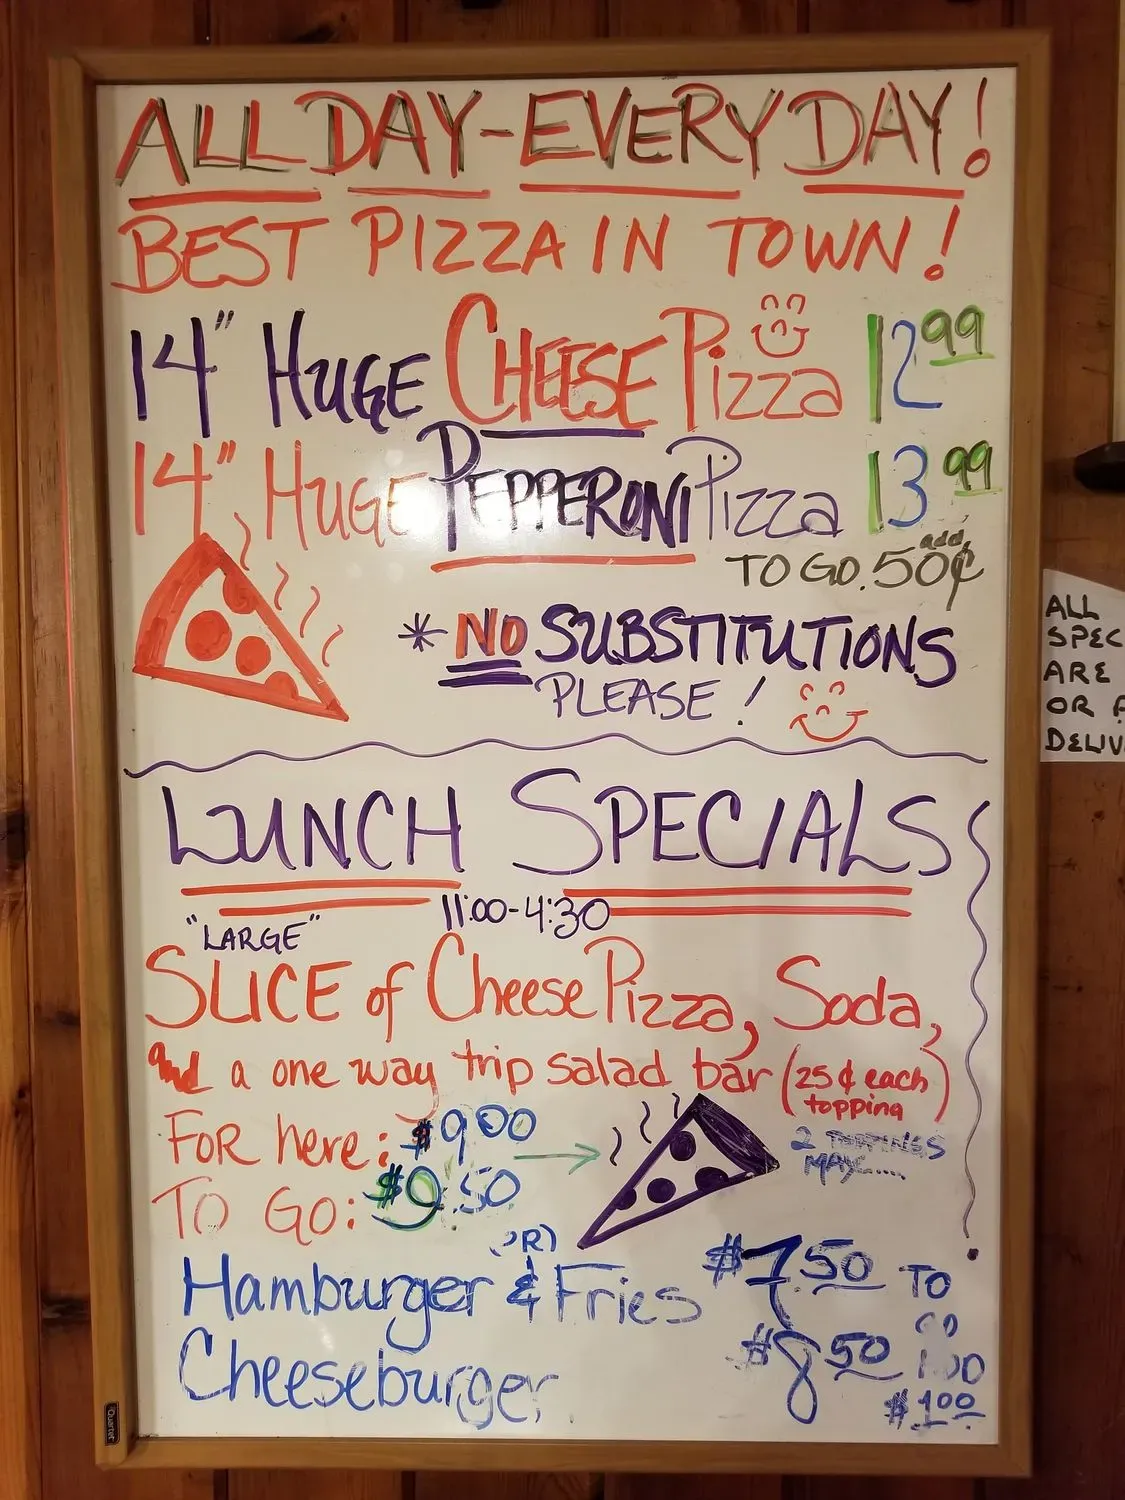 ALL DAY-EVERY DAY!
BEST PIZZA IN TOWN!
14" HUGE CHEESE Pizza 12.99
14" HUGE PEPPERONI Pizza 13.99
add
TO GO .50¢
* NO SUBSTITUTIONS
PLEASE!
LUNCH SPECIALS
11:00-4:30
"LARGE"
SLICE of Cheese Pizza, Soda,
and a one way trip salad bar (25¢ each
topping)
FOR here: $9.00
2 TOPPINGS
MAX....
TO GO: $9.50
Hamburger & Fries $7.50 TO
GO
Cheeseburger $8.50
$1.00
ALL
SPEC
ARE
OR
DELIV
Quartet